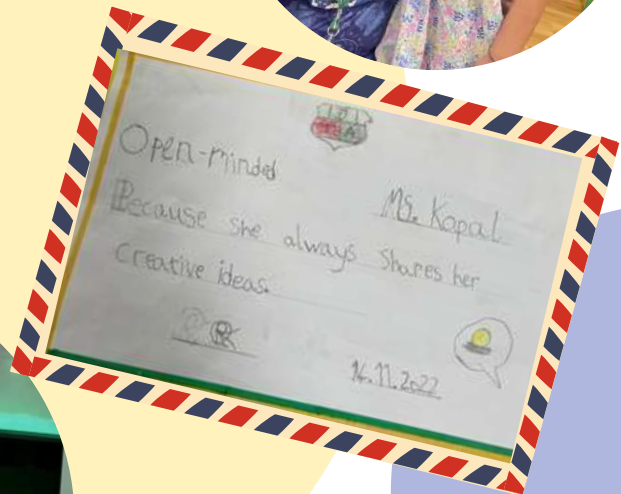 Open-minded
Ms. Kopal
Because she always shares her
creative ideas.
14.11.2022